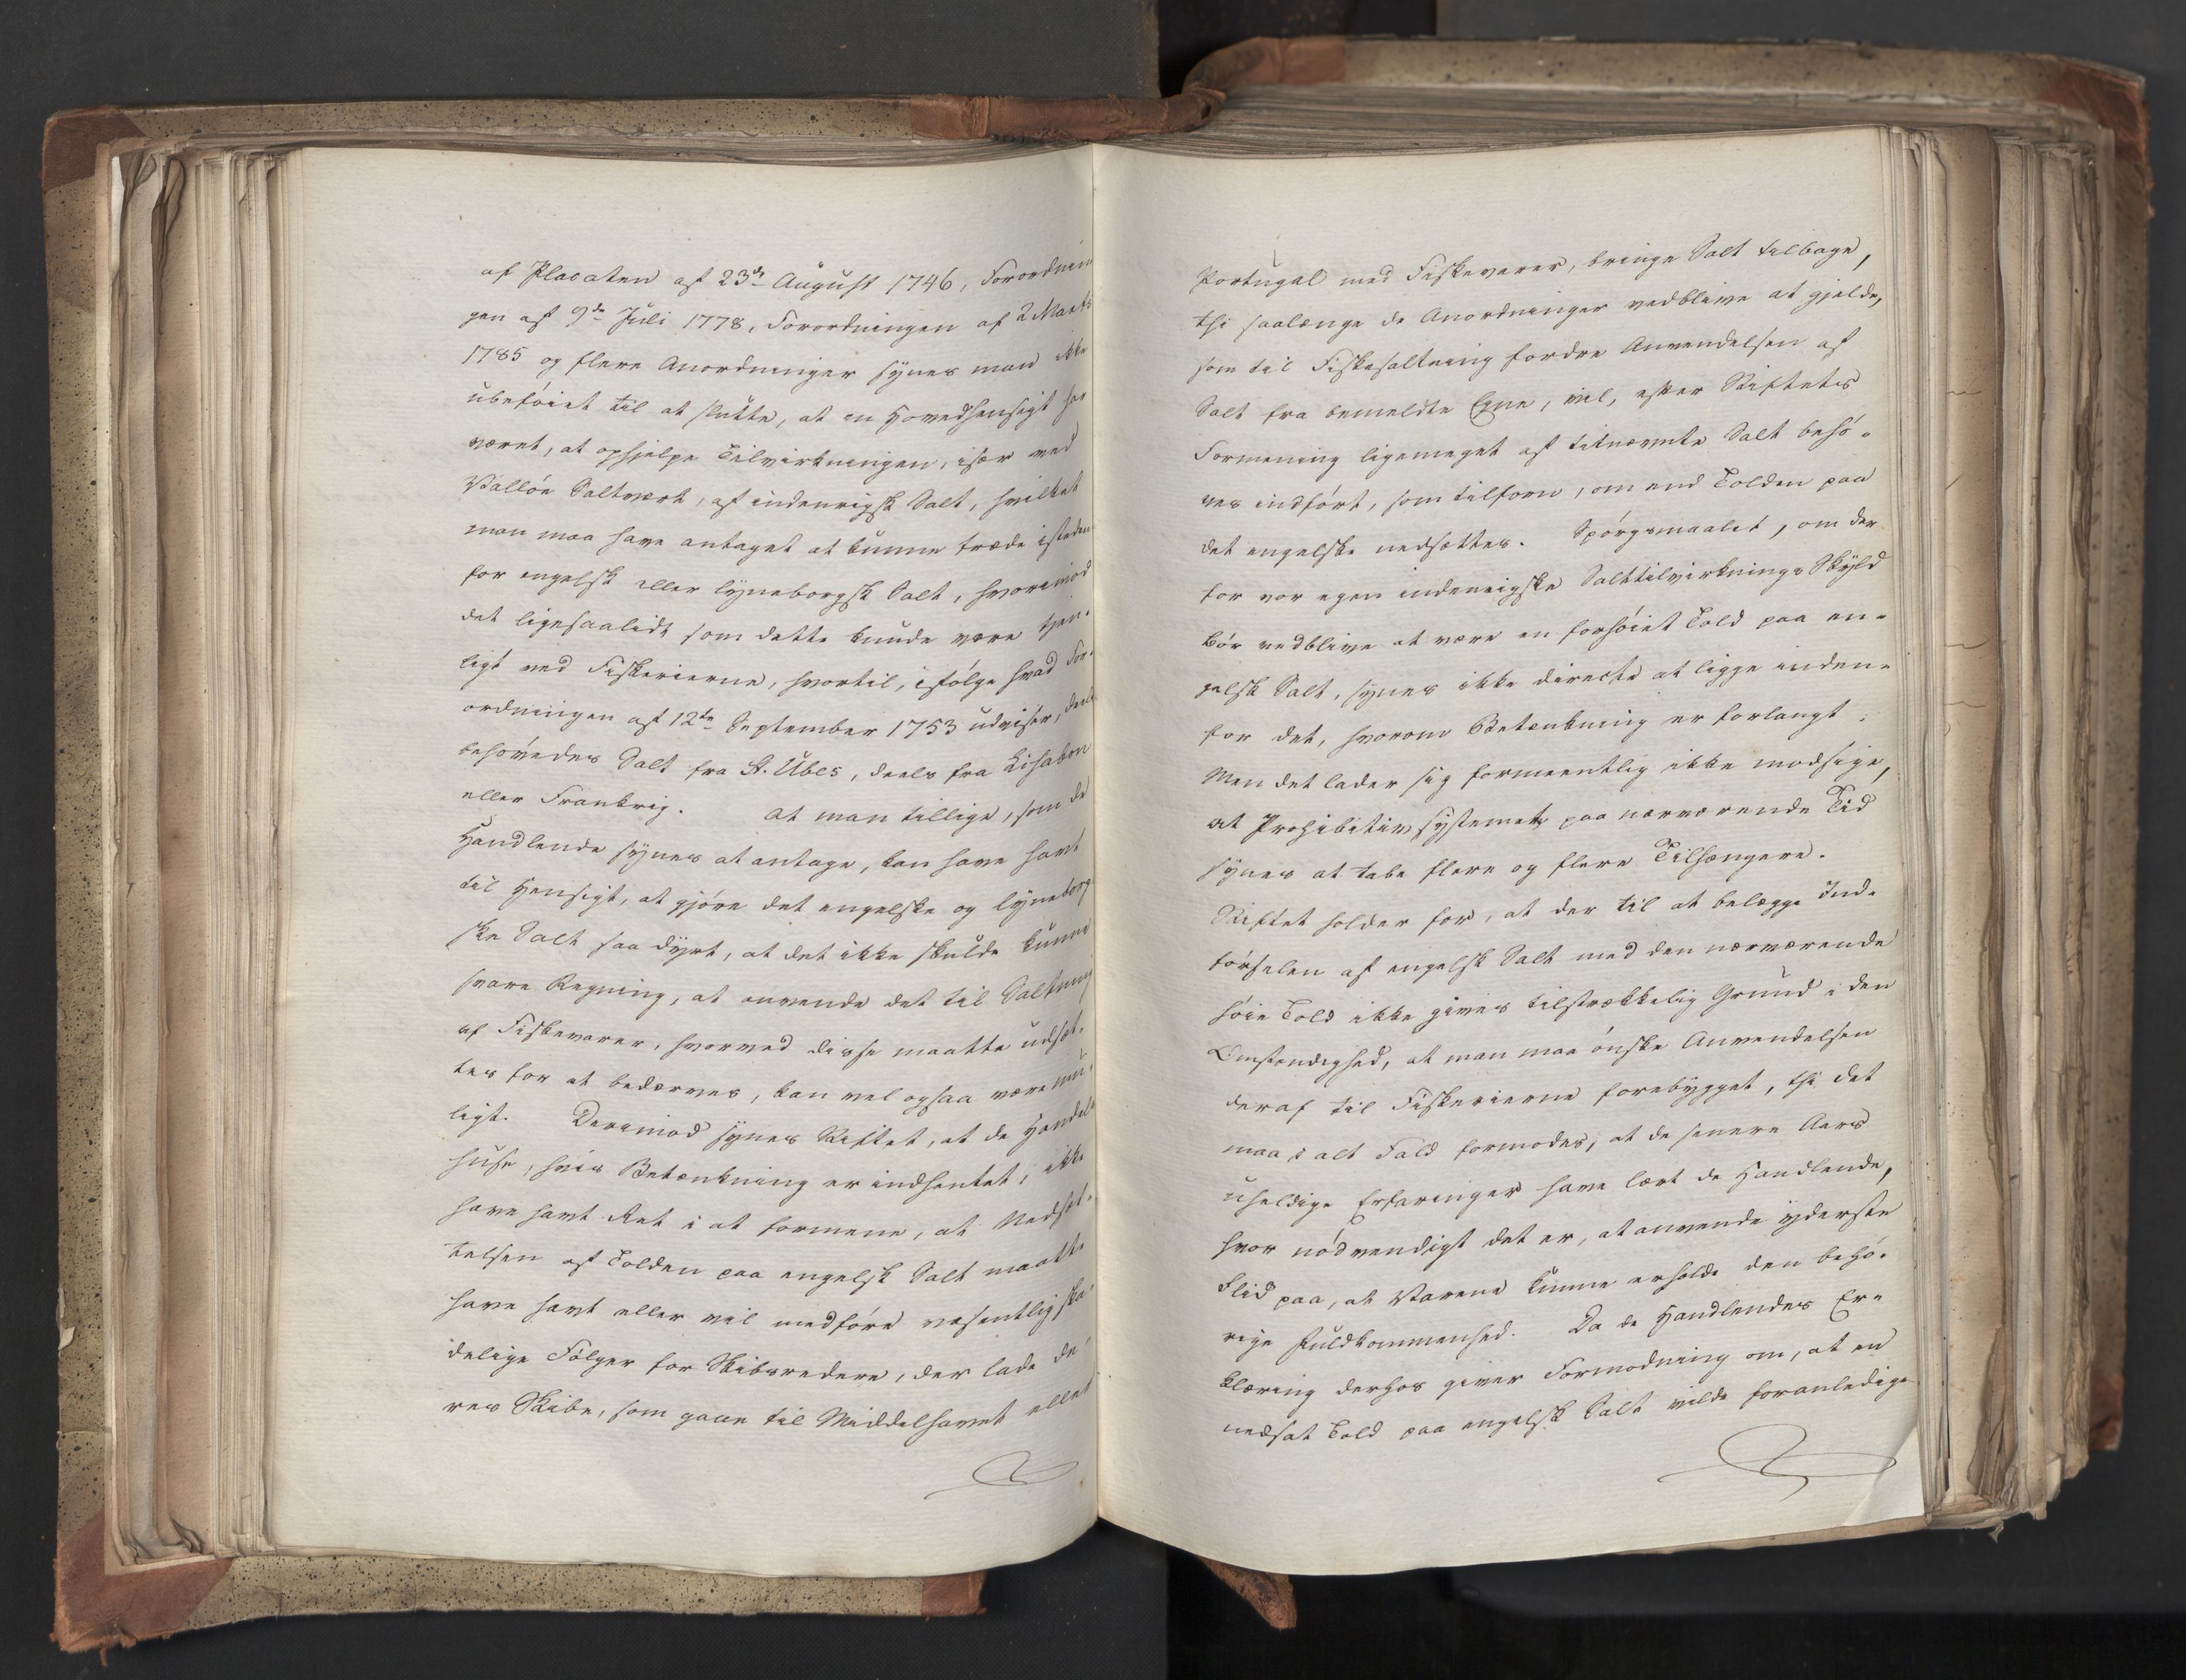 af Placaten af 23de August 1746, Forordnin
gen af 9de Juli 1778, Forordningen af 2 Marts
1785 og flere Anordninger synes man ikke
ubeføiet til at slutte, at en Hovedhensigt har
været, at ophjelpe Tilvirkningen, især ved
Valløe Saltværk, af indenrigsk Salt, hvilket
man maa have antaget at kunne træde isteden
for engelsk eller lyneborgsk Salt, hvorimod
det ligesaalidt som dette kunde være tjen-
ligt ved Fiskerierne, hvortil, ifølge hvad For-
ordningen af 12te September 1753 udviser, deels
behøvedes Salt fra St. Übes, deels fra Lisabon
eller Frankrig. At man tillige, som de
Handlende synes at antage, kan have havt
til Hensigt, at gjøre det engelske og lyneborg
ske Salt saa dyrt, at det ikke skulde kunne
svare Regning, at anvende det til Saltning
af Fiskevarer, hvorved disse maatte udsæt-
tes for at bedærves, kan vel ogsaa være mu-
ligt. Derimod synes Stiftet, at de Handels
huse, hvis Betænkning er indhentet, ikke
have havt Ret i at formene, at Nedsæt-
telsen af Tolden paa engelsk Salt maatte
have havt eller vil medføre væsentlig ska-
delige Følger for Skibsredere, der lade de-
res Skibe, som gaae til Middelhavet eller
Portugal med Fiskevarer, bringe Salt tilbage,
thi saalænge de Anordninger vedblive at gjelde,
som til Fiskesaltning fordre Anvendelsen af
Salt fra bemeldte Egne, vil, efter Stiftets
Formening ligemeget af titnævnte Salt behø-
ves indført, som tilforn, om end Tolden paa
det engelske nedsættes. Spørgsmaalet, om der
for vor egen indenrigske Salttilvirknings Skyld
bør vedblive at være en forhøiet Told paa en-
gelsk Salt, synes ikke directe at ligge inden-
for det, hvorom Betænkning er forlangt.
Men det lader sig formeentlig ikke modsige,
at Prohibitivsystemet paa nærværende Tid
synes at tabe flere og flere Tilhængere.
Stiftet holder for, at der til at belægge Ind-
førselen af engelsk Salt med den nærværende
høie Told ikke gives tilstrækkelig Grund i den
Omstændighed, at man maa ønske Anvendelsen
deraf til Fiskerierne forebygget, thi det
maa i alt Fald formodes, at de senere Aars
uheldige Erfaringer have lært de Handlende,
hvor nødvendigt det er, at anvende yderste
Flid paa, at Varene kunne erholde den behø-
rige Fuldkommenhed. Da de Handlendes Er-
klæring derhos giver Formodning om, at en
nedsat Told paa engelsk Salt vilde foranledige